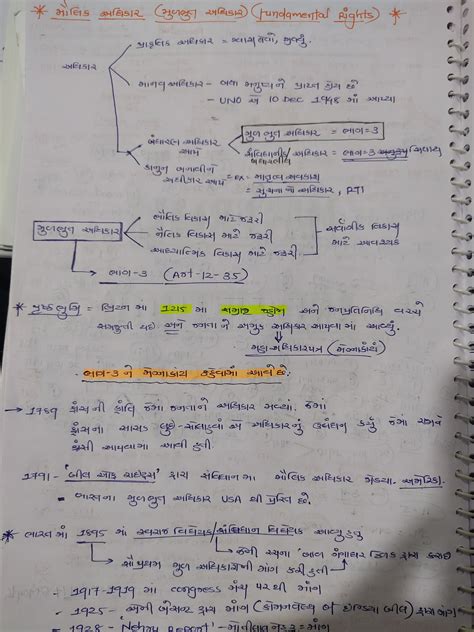 * મૌલિક અધિકાર (મુળભુત અધિકાર) (Fundamental Rights) *
અધિકાર
પ્રાકૃતિક અધિકાર = શ્વાસ લેવો, જીવવું.
માનવ અધિકાર - બધા મનુષ્યને પ્રાપ્ત હોય છે
- UNO એ 10 DEC 1948 માં આપ્યા
મુળભુત અધિકાર = ભાગ-3
બંધારણ અધિકાર આપે
ભાગ-3
કાનુન બનાવીને અધિકાર આપે = ex-
= સુચના નો અધિકાર, RTI
મુળભુત અધિકાર
ભૌતિક વિકાસ માટે જરૂરી
નૈતિક વિકાસ માટે જરૂરી
આધ્યાત્મિક વિકાસ માટે જરૂરી
સર્વાંગીક વિકાસ માટે આવશ્યક
ભાગ-3 (Art-12-35)
* પૃષ્ઠભુમિ = બ્રિટન માં 1215 માં સમ્રાટ જ્હોન અને જનપ્રતિનિધિ વચ્ચે
સમજુતી થઈ અને જનતાને અમુક અધિકાર આપવામાં આવ્યું.
મહાઅધિકારપત્ર (મેગ્નાકાર્ટા)
ભાગ-3 ને મેગ્નાકાર્ટા કહેવામાં આવે છે.
→ 1789 ફ્રાંસની ક્રાંતિ જેમાં જનતાને અધિકાર મળ્યાં. જેમાં
ફ્રાંસના શાસક લુઈ-સોલહવાં એ અધિકારનું ઉલંઘન કર્યું જેમાં
ફાંસી આપવામાં આવી હતી.
1791 - 'બીલ ઓફ રાઇટ્સ' દ્વારા સંવિધાનમાં મૌલિક અધિકાર જોડ્યા. અમેરિકા
- ભારતના મુળભુત અધિકાર USA થી પ્રેરિત છે.
* ભારતમાં 1895 માં સ્વરાજ વિધેયક/સંવિધાન વિધેયક આવ્યું હતું
જેની રચના 'બાલ ગંગાધર ટિળક દ્વારા
→ સૌ પ્રથમ મુળ અધિકારોની માંગ કરી હતી
- 1917-1919 માં congress મંચ પર થી માંગ
- 1925 - એની બેસન્ટ દ્વારા માંગ (કોમનવેલ્થ ઓફ ઇન્ડિયા બીલ) દ્વારા માંગ
- 1928 - 'Nehru Report' - મોતીલાલ